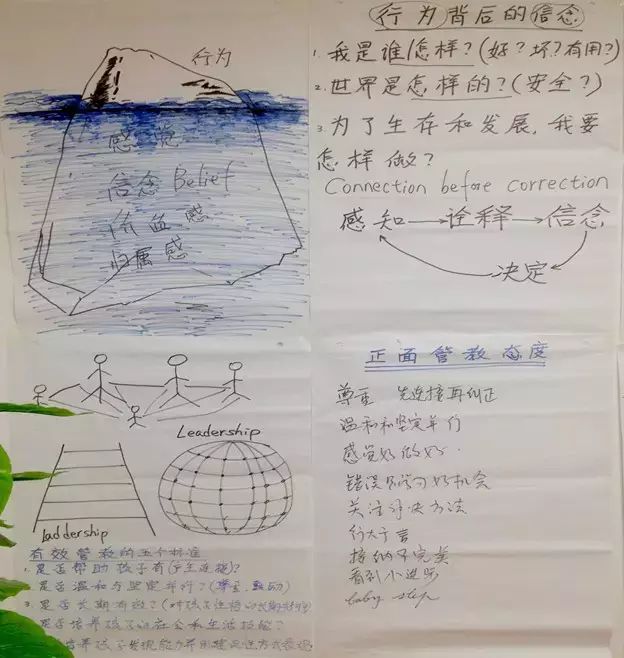 行为
感觉
信念 Belief
价值感
归属感
行为背后的信念
1. 我是谁/怎样?(好?坏?有用?)
2. 世界是怎样的?(安全?)
3. 为了生存和发展,我要
怎样做?
Connection before correction
感知→诠释→信念
决定
Leadership
Laddership
有效管教的五个标准
1. 是否帮助孩子有(产生连接)?
2. 是否温和与坚定并行?(尊重、鼓励)
3. 是否长期有效?(对孩子
是否培养孩子的社会和生活技能?
培养孩子发现能力
正面管教态度
尊重 先连接再纠正
温和和坚定并行
感觉好做好
错误是学习好机会
关注解决方法
行大于言
接纳不完美
看到小进步
baby step